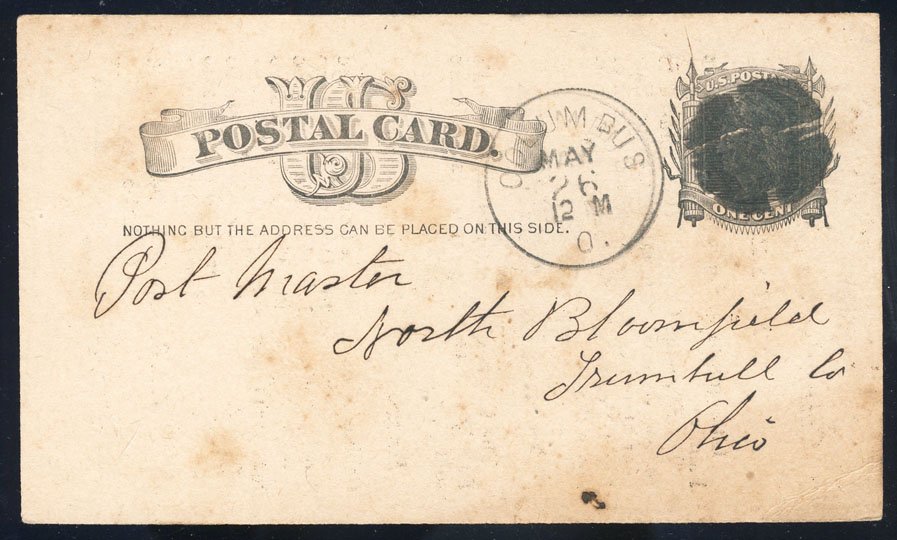 US
POSTAL CARD.
U.S. POSTAGE
ONE CENT
COLUMBUS
MAY
26
12 M
O.
NOTHING BUT THE ADDRESS CAN BE PLACED ON THIS SIDE.
Post Master
North Bloomfield
Trumbull Co
Ohio